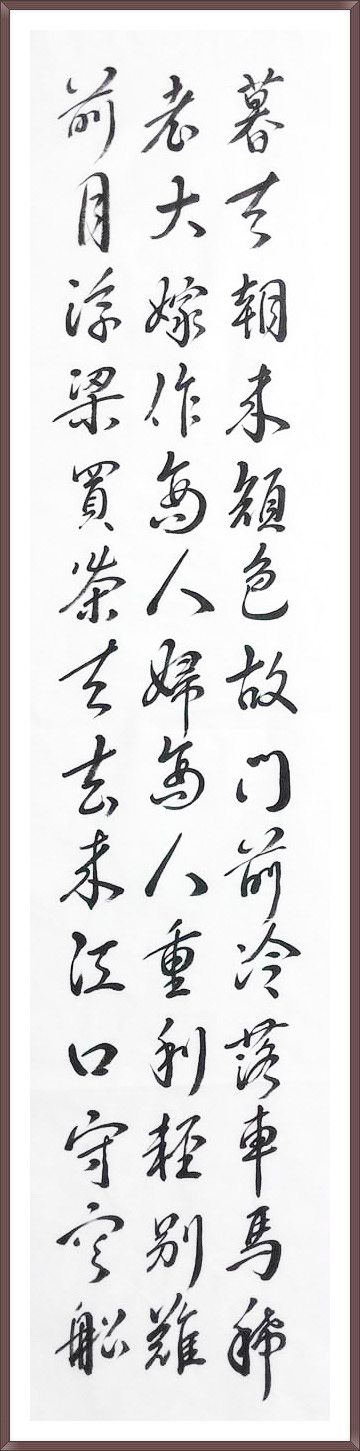 暮去朝来顔色故門前冷落車馬稀
老大嫁作商人婦商人重利輕別離
前月浮梁買茶去去来江口守空船